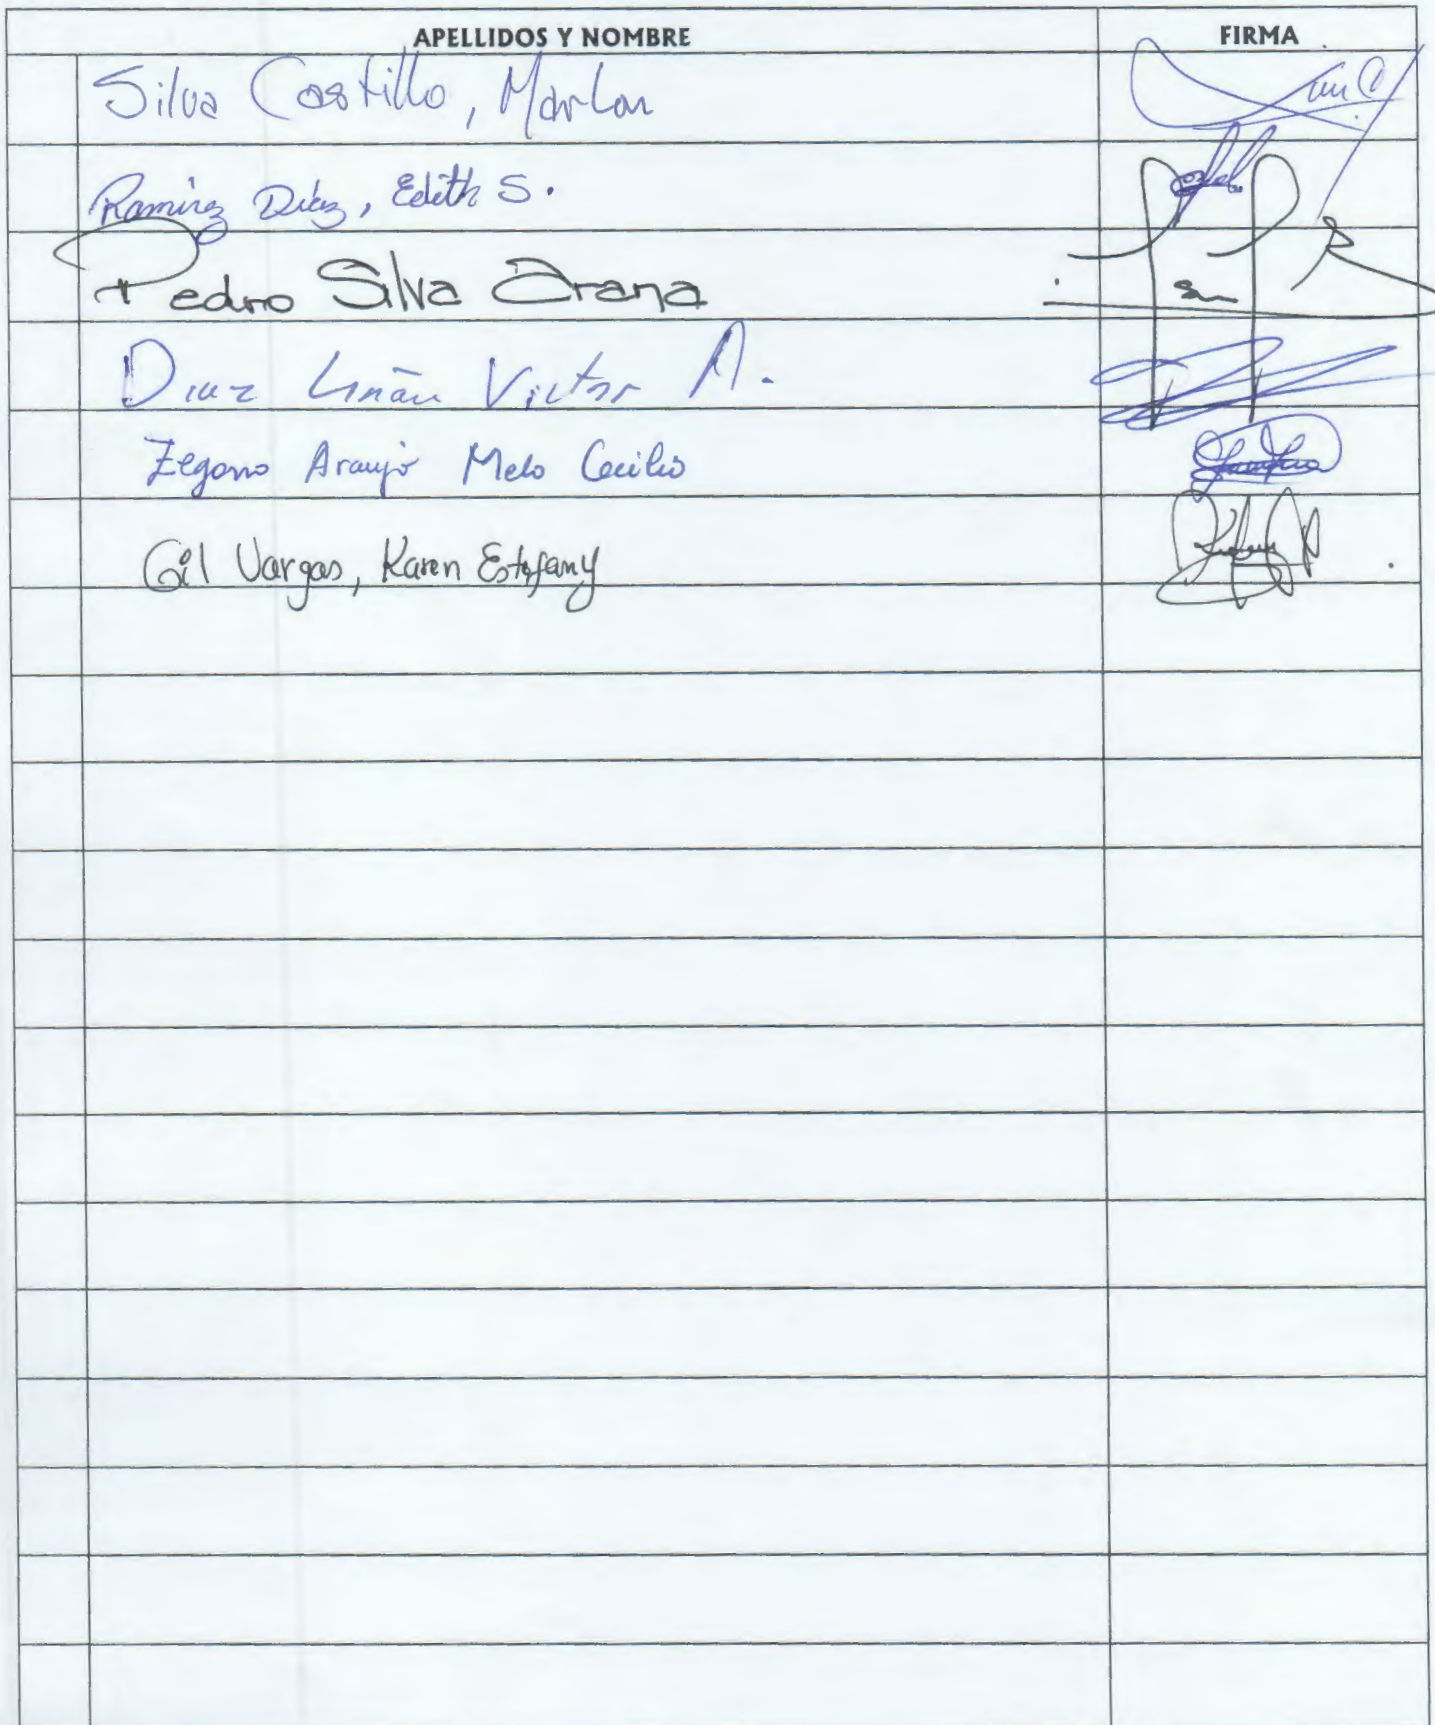 APELLIDOS Y NOMBRE FIRMA
Silva Castillo, Marlon
Ramirez Diaz, Edith S.
Pedro Silva Arana
Diaz Liñán Victor A.
Araujo Cecilio
Gil Vargas, Karen Estefany